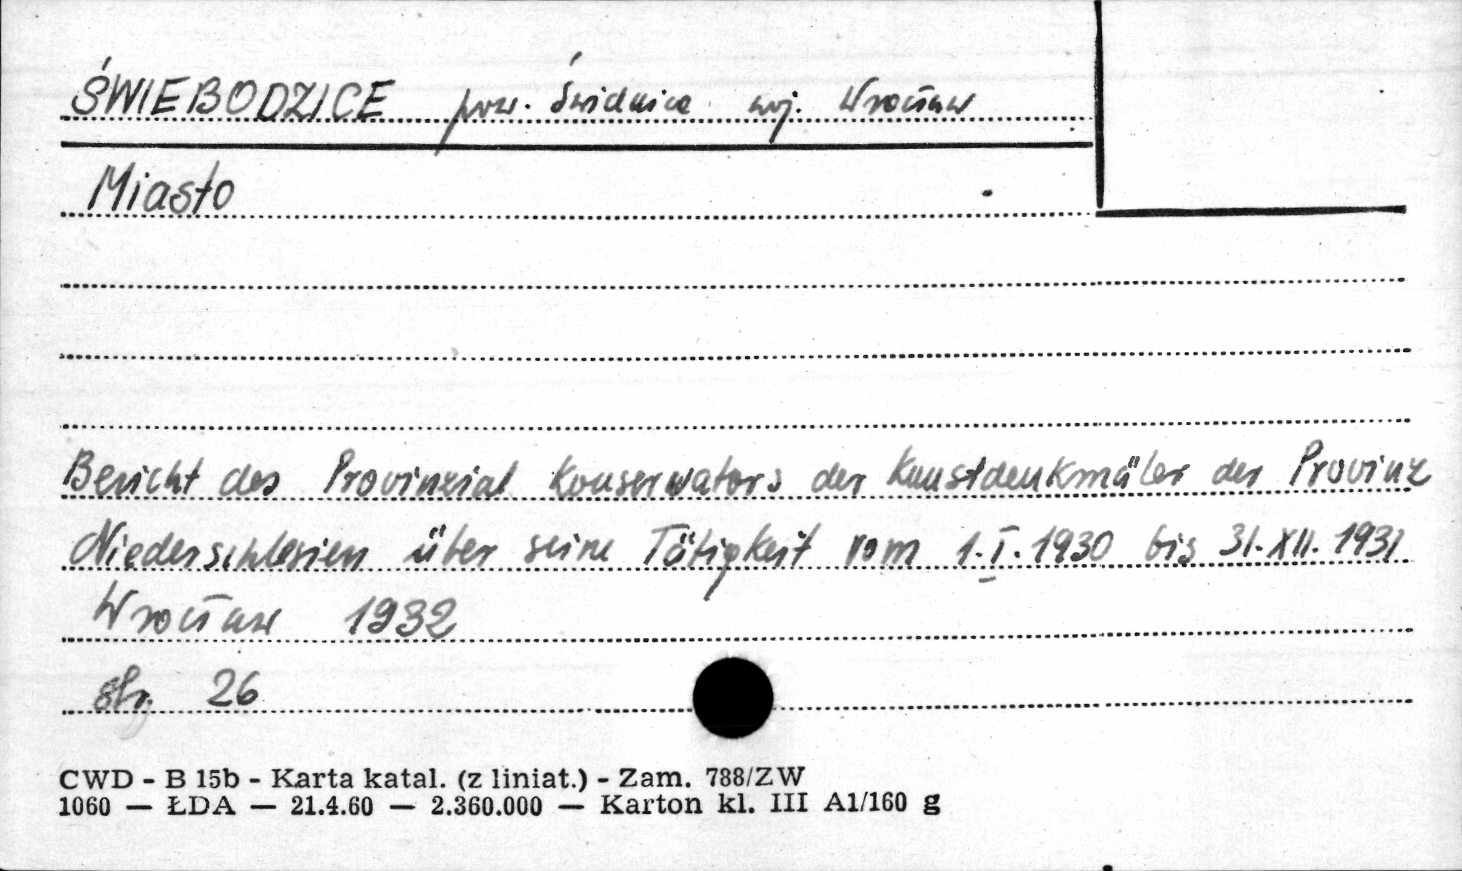 ŚWIEBODZICE pow. Świdnica woj. Wrocław
Miasto
Bericht des Provinzial Konservators der Kunstdenkmäler der Provinz
Niederschlesien über seine Tätigkeit vom 1.I.1930 bis 31.XII.1931
Wrocław 1932
str. 26
CWD - B 15b - Karta katal. (z liniat.) - Zam. 788/ZW
1060 — ŁDA — 21.4.60 — 2.360.000 — Karton kl. III A1/160 g